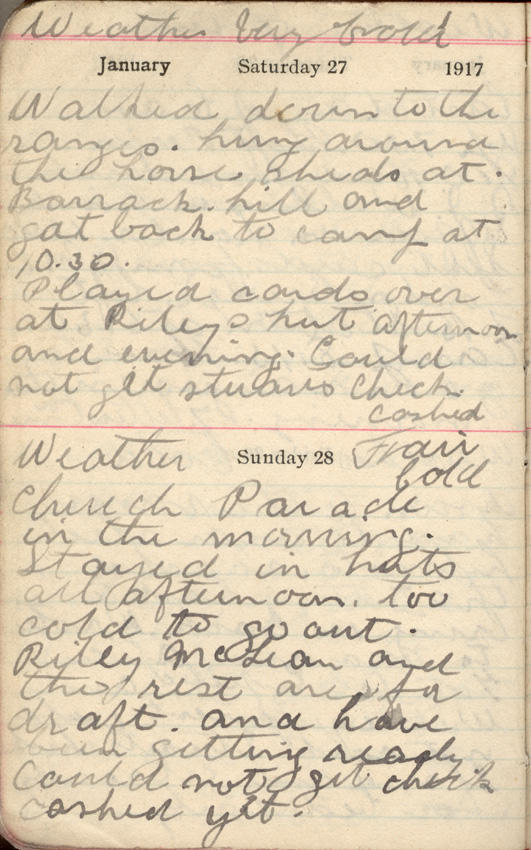 Weather Very Cold
January Saturday 27 1917
Walked down to the
ranges. hung around
the horse sheds at.
Barrack. hill and
gat back to camp at
10.30.
Played cards over
at Rileys hut afternoon
and evening. Could
not get check.
cashed
Weather Sunday 28 Fair
Cold
Church Parade
in the morning.
Stayed in huts
all afternoon. too
cold to go out.
Riley McLean and
the rest are for
draft. and have
been getting ready
Could not get check
cashed yet.